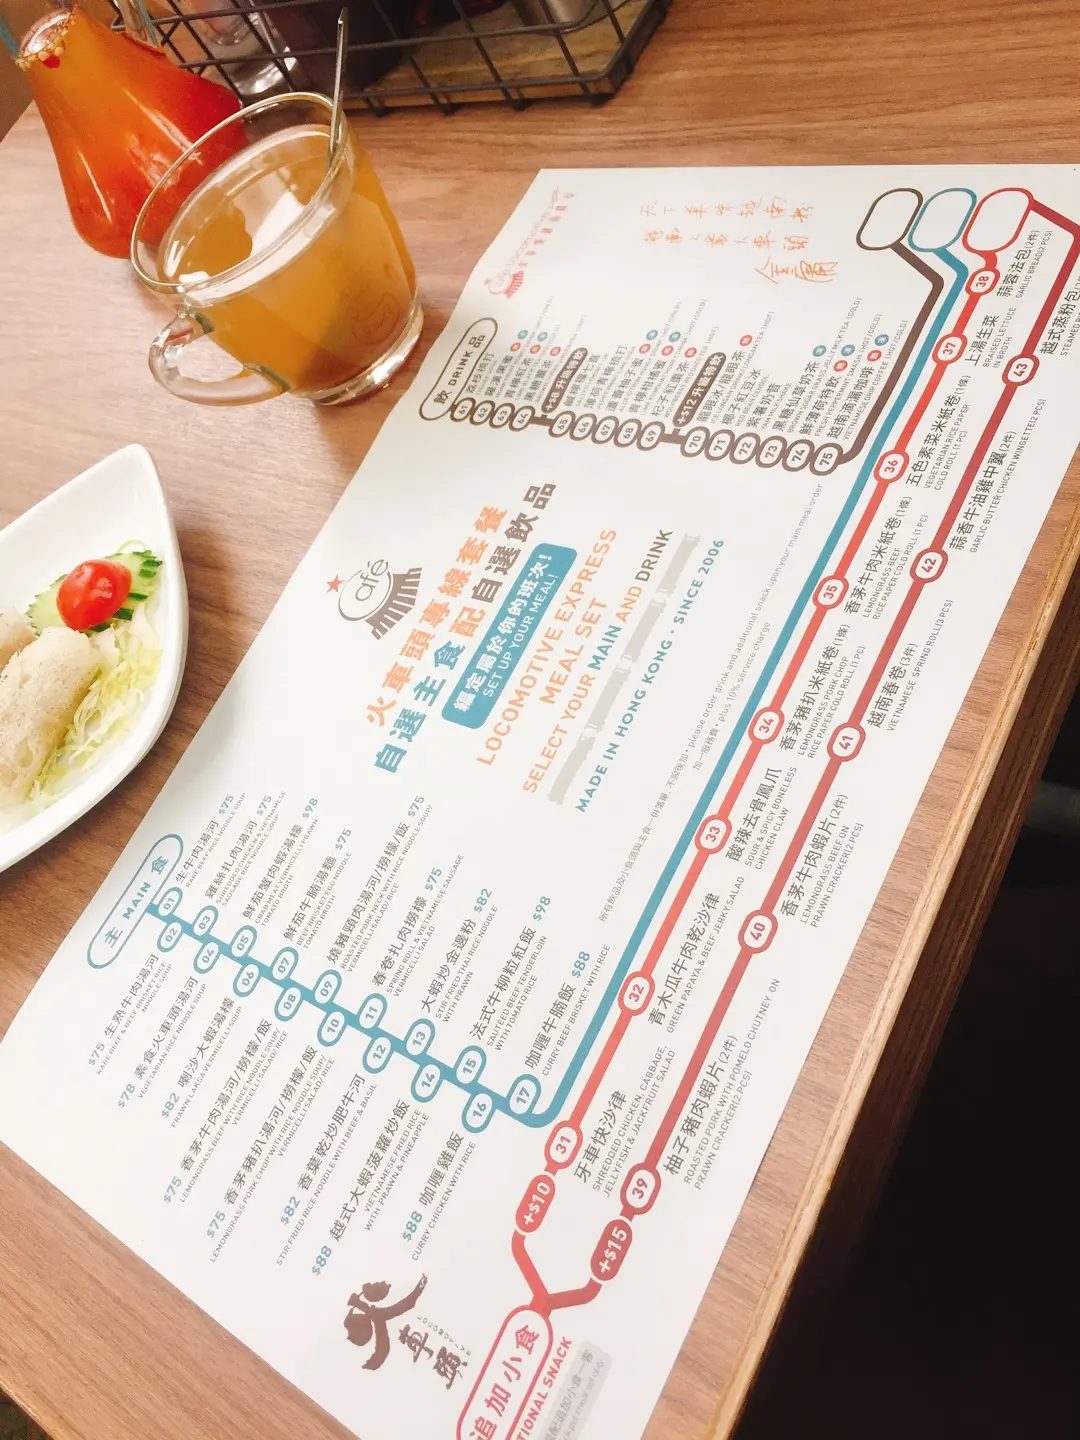 天下美味越南粉
金庸
飲 DRINK 品
61
62
63
64
+$8 升級特飲
65
66
67
68
69
+$12 升級特飲
70
71
72
73
74
75
龍眼冰/龍眼茶
椰子紅豆冰
紫薯奶昔
黑糖仙草奶茶
鮮薄荷特飲
越南滴漏咖啡
VIETNAMESE DRIP COFFEE (HOT/COLD)
Cafe
火車頭專線套餐
自選主食配自選飲品
編定屬於你的班次!
SET UP YOUR MEAL!
LOCOMOTIVE EXPRESS
MEAL SET
SELECT YOUR MAIN AND DRINK
MADE IN HONG KONG · SINCE 2006
所有飲品及小食須與主食一併落單, 不設後加 · please order drink and additional snack upon your main meal order
加一服務費 · plus 10% service charge
主 MAIN 食
01
生牛肉湯河 $75
RARE BEEF RICE NOODLE SOUP
03
雞絲扎肉湯河 $75
SHREDDED CHICKEN & VIETNAMESE
SAUSAGE RICE NOODLE SOUP
05
鮮茄蟹肉蝦湯檬 $98
CRAB MEAT VERMICELLI PRAWN
TOMATO BROTH
07
鮮茄牛腩湯麵 $75
BEEF BRISKET EGG NOODLE
TOMATO BROTH
09
燒豬頸肉湯河/撈檬/飯 $75
ROASTED PORK NECK WITH RICE NOODLE SOUP/
VERMICELLI SALAD/RICE
11
春卷扎肉撈檬 $75
SPRING ROLL & VIETNAMESE SAUSAGE
VERMICELLI SALAD
13
大蝦炒金邊粉 $82
STIR FRIED THAI RICE NOODLE
WITH PRAWN
15
法式牛柳粒紅飯 $98
SAUTEED BEEF TENDERLOIN
WITH TOMATO RICE
17
咖喱牛腩飯 $88
CURRY BEEF BRISKET WITH RICE
02
$75 生熟牛肉湯河
RARE BEEF & BEEF BRISKET RICE
NOODLE SOUP
04
$78 素食火車頭湯河
VEGETARIAN RICE NOODLE SOUP
06
$82 喇沙大蝦湯檬
PRAWN LAKSA VERMICELLI SOUP
08
$75 香茅牛肉湯河/撈檬/飯
LEMONGRASS BEEF WITH RICE NOODLE SOUP/
VERMICELLI SALAD/RICE
10
$75 香茅豬扒湯河/撈檬/飯
LEMONGRASS PORK CHOP WITH RICE NOODLE SOUP/
VERMICELLI SALAD/RICE
12
$82 香葉乾炒肥牛河
STIR FRIED RICE NOODLE WITH BEEF & BASIL
14
$88 越式大蝦菠蘿炒飯
VIETNAMESE FRIED RICE
WITH PRAWN & PINEAPPLE
16
$88 咖喱雞飯
CURRY CHICKEN WITH RICE
火車頭
LOCOMOTIVE
追加小食
TIONAL SNACK
+$10
31
牙車快沙律
SHREDDED CHICKEN, CABBAGE,
JELLYFISH & JACKFRUIT SALAD
32
青木瓜牛肉乾沙律
GREEN PAPAYA & BEEF JERKY SALAD
33
酸辣去骨鳳爪
SOUR & SPICY BONELESS
CHICKEN CLAW
34
香茅豬扒米紙卷(1條)
LEMONGRASS PORK CHOP
RICE PAPER COLD ROLL (1 PC)
35
香茅牛肉米紙卷(1條)
LEMONGRASS BEEF
RICE PAPER COLD ROLL (1 PC)
36
五色素菜米紙卷(1條)
VEGETARIAN RICE PAPER
COLD ROLL (1 PC)
37
上湯生菜
BRAISED LETTUCE
IN BROTH
38
蒜蓉法包(2件)
GARLIC BREAD(2 PCS)
+$15
39
柚子豬肉蝦片(2件)
ROASTED PORK WITH POMELO CHUTNEY ON
PRAWN CRACKER(2 PCS)
40
香茅牛肉蝦片(2件)
LEMONGRASS BEEF ON
PRAWN CRACKER(2 PCS)
41
越南春卷(3件)
VIETNAMESE SPRING ROLL(3 PCS)
42
蒜香牛油雞中翼(2件)
GARLIC BUTTER CHICKEN WINGETTE(2 PCS)
43
越式蒸粉包
STEAMED